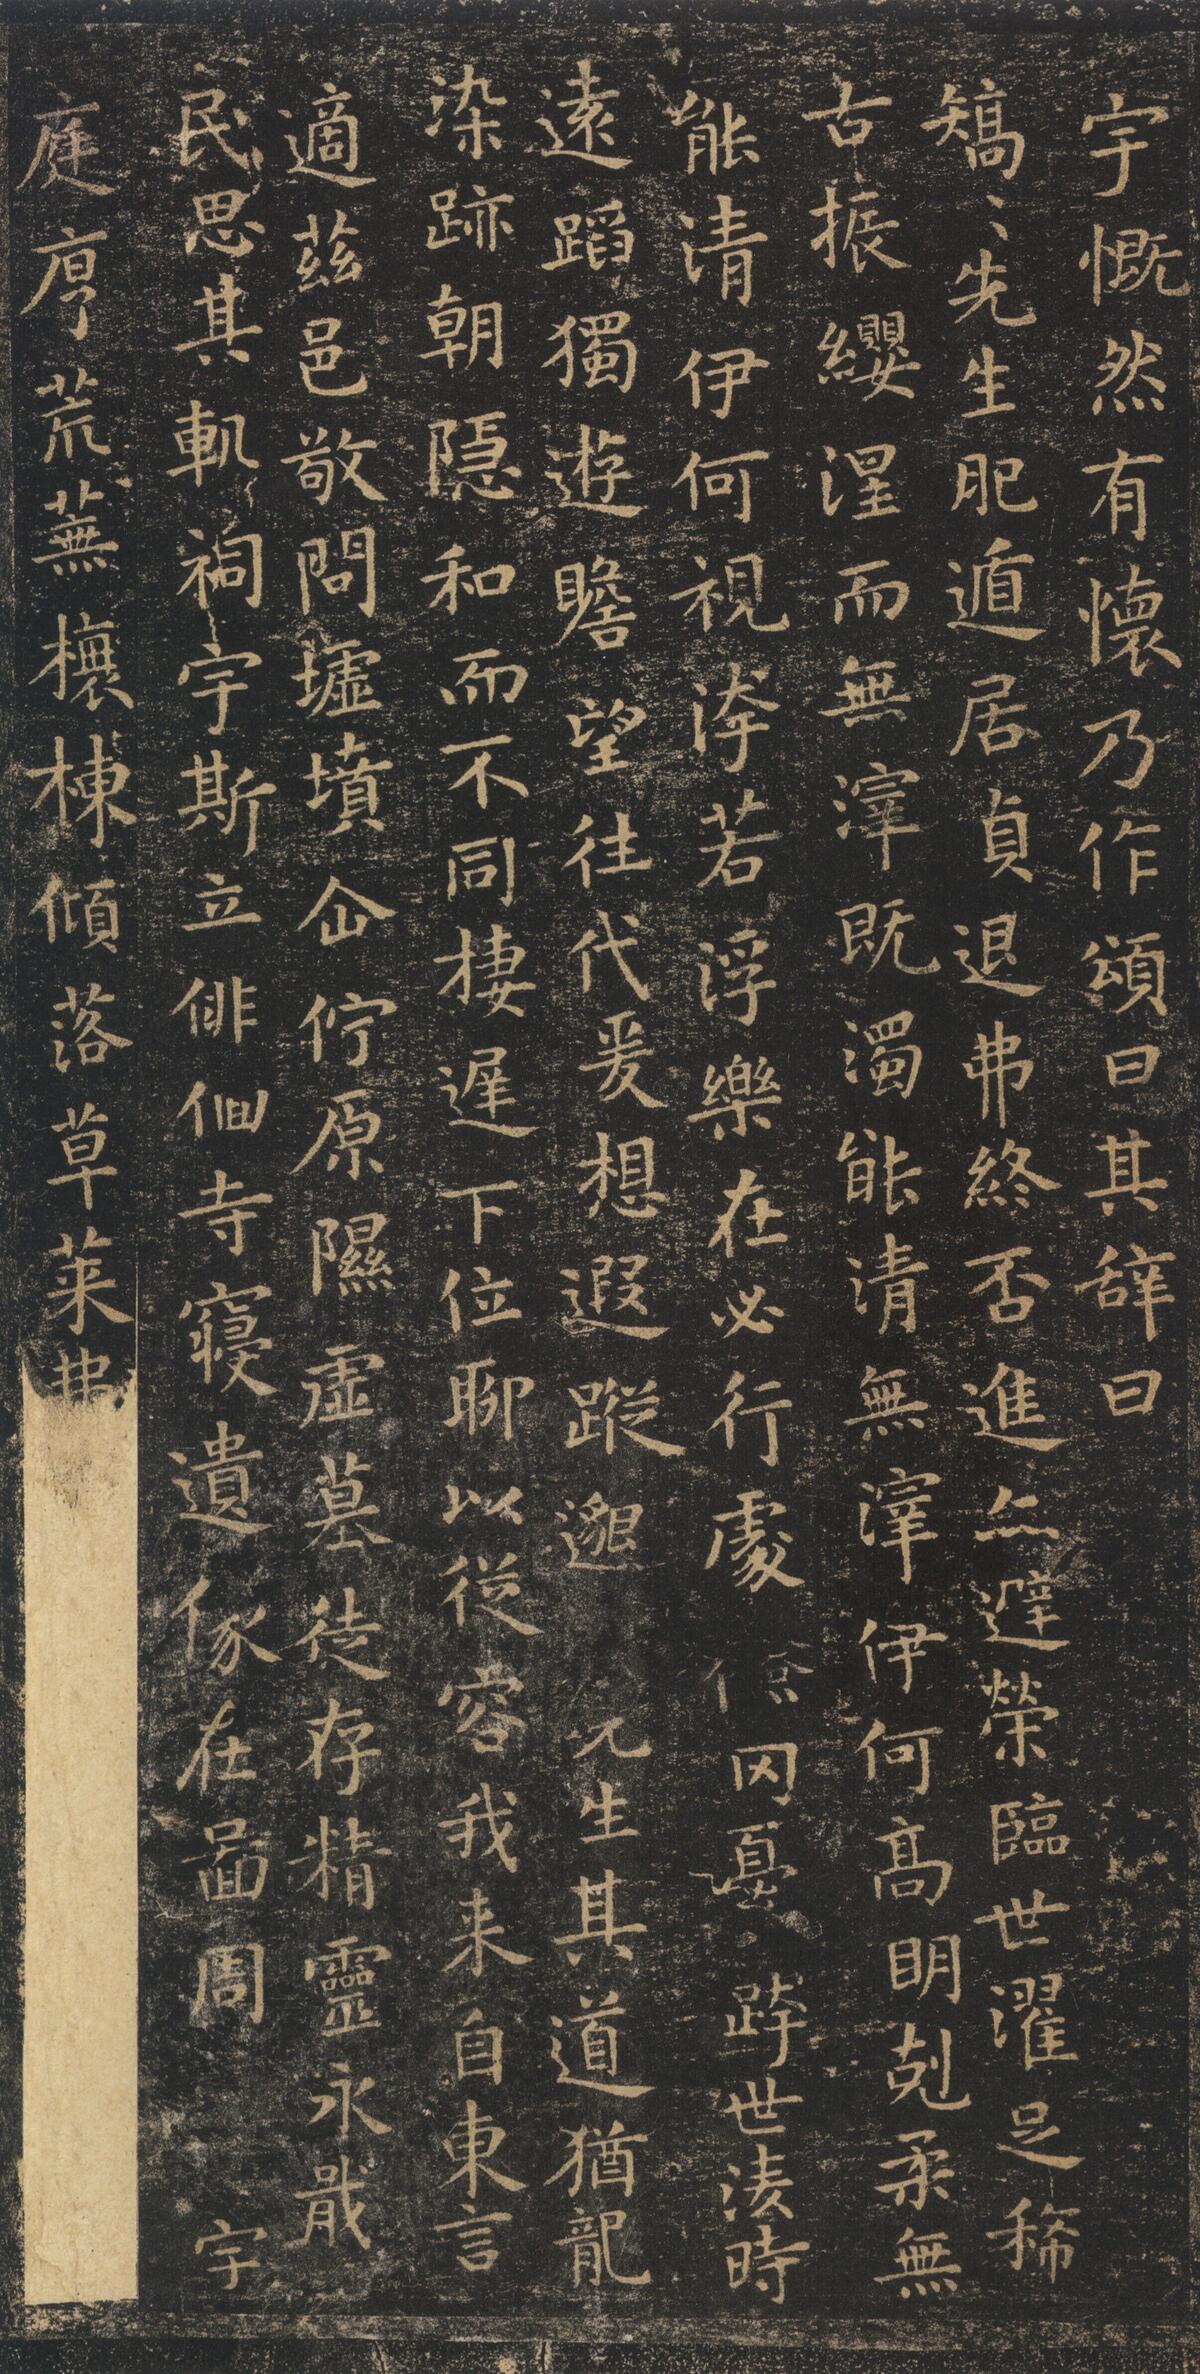 宇慨然有懷乃作頌曰其辭曰
矯〻先生肥遁居貞退弗終否進亦避榮臨世濯足稀
古振纓涅而無滓既濁能清無滓伊何高明剋柔無
能清伊何視洿若浮樂在必行處儉罔憂跨世淩時
遠蹈獨遊瞻望往代爰想遐蹤邈先生其道猶龍
染跡朝隱和而不同棲遲下位聊以從容我来自東言
適茲邑敬問墟墳企佇原隰虛墓徒存精靈永戢
民思其軌祠宇斯立俳佪寺寢遺像在圖周宇
庭序荒蕪榱棟傾落草莱弗